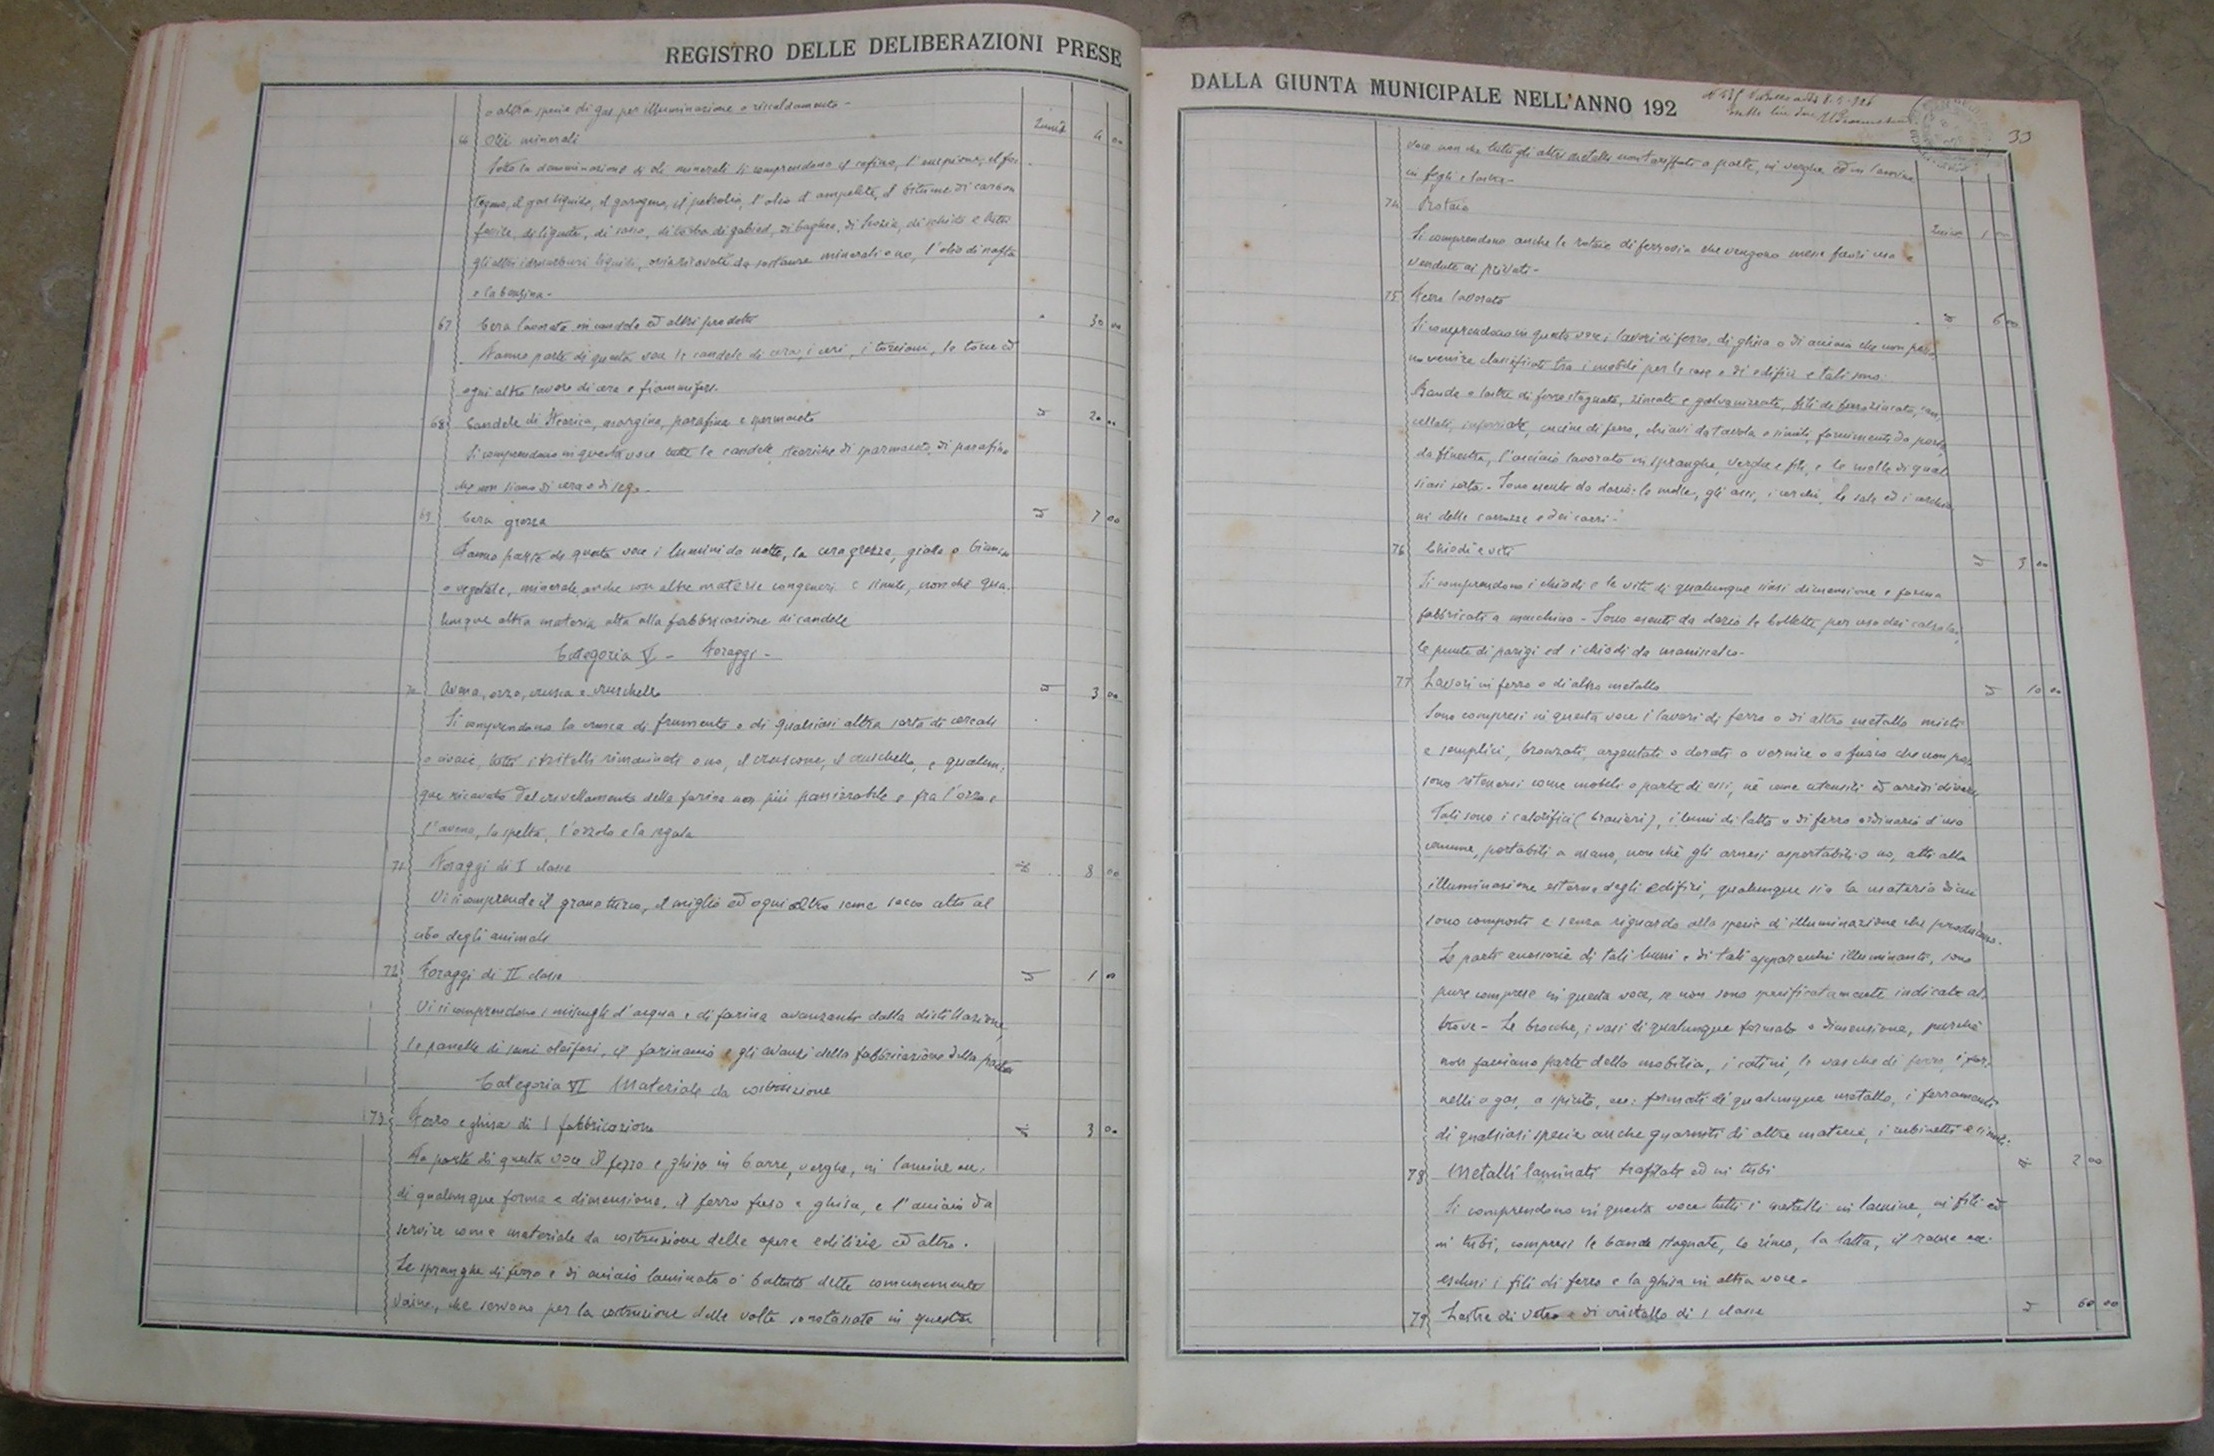 REGISTRO DELLE DELIBERAZIONI PRESE
o altra specie di gas per illuminazione o riscaldamento -
66 Olii minerali 4 00
Sotto la denominazione di olii minerali si comprendono il
il gas liquido, il gazogeno, il petrolio, l'olio d'
fossile, di lignite, di di di di di schisto e
gli altri idrocarburi liquidi, ricavati da sostanze minerali o no, l'olio di nafta
e la benzina -
67 Cera lavorata in candele ed altri prodotti 30 00
Fanno parte di questa voce le candele di cera, i ceri, i torcioni, le torce ed
ogni altro lavoro di cera e fiammiferi.
68 Candele di stearica, margine, parafina e spermaceto 20 00
Si comprendono in questa voce tutte le candele steariche di sparmaceto, di parafina
che non siano di cera o di sego -
69 Cera grezza 7 00
Fanno parte di questa voce i lumini da notte, la cera grezza, gialla o bianca
o vegetale, minerale, anche con altre materie congeneri e simili, nonchè qua-
lunque altra materia atta alla fabbricazione di candele
Categoria V - Foraggi -
70 Avena, orzo, crusca e cruschello 3 00
Si comprendono la crusca di frumento o di qualsiasi altra sorta di cereali
tutti i tritelli rimacinati o no, il cruscone, il cruschello, e qualun-
que ricavato del crivellamento della farina non più panizzabile e fra l'orzo e
l'avena, la spelta, l'orzola e la segala
71 Foraggi di I classe 8 00
Vi si comprende il granoturco, il miglio ed ogni altro seme secco atto al
cibo degli animali
72 Foraggi di II classe 1 00
Vi si comprendono i miscugli d'acqua e di farina avanzanti dalla distillazione,
le panelle di semi oleiferi, il farinaccio e gli avanzi della fabbricazione della pasta
Categoria VI Materiale da costruzione
73 Ferro e ghisa di 1 fabbricazione 3 00
Fa parte di questa voce il ferro e ghisa in barre, verghe, in lamine ecc.
di qualunque forma e dimensione, il ferro fuso e ghisa, e l'acciaio da
servire come materiale da costruzione delle opere edilizie ed altro.
Le spranghe di ferro e di acciaio laminato o battuto dette comunemente
che servono per la costruzione delle volte in questa
DALLA GIUNTA MUNICIPALE NELL'ANNO 192
33
voce non che tutti gli altri metalli non tariffati a parte, in verghe ed in lamine
in fogli e lastre -
74 Rotaie 1 00
Si comprendono anche le rotaie di ferrovia che vengono messe fuori uso e
vendute ai privati -
75 Ferro lavorato 6 00
Si comprendono in questa voce i lavori di ferro, di ghisa o di acciaio che non pos-
no venire classificati tra i mobili per le case e di edifici e tali sono:
Bande e lastre di ferro stagnate, zincate e galvanizzate, fili di ferro zincato, can-
cellati, inferriate, cucine di ferro, chiavi da tavola e simili, fornimenti da porta
da finestra, l'acciaio lavorato in spranghe, verghe e fili, e le molle di qual-
siasi sorta - Sono esenti da dazio: le molle, gli assi, i cerchi, le sale ed i
ni delle carrozze e dei carri -
76 Chiodi e viti 3 00
Si comprendono i chiodi e le viti di qualunque siasi dimensione e forma
fabbricati a macchina - Sono esenti da dazio le bollette per uso dei calzolai,
le punte di parigi ed i chiodi da maniscalco -
77 Lavori in ferro o di altro metallo 10 00
Sono compresi in questa voce i lavori di ferro o di altro metallo misti
e semplici, bronzati, argentati o dorati a vernice o a fuoco che non pos-
sono ritenersi come mobili o parte di essi, nè come utensili ed arredi diversi
Tali sono i caloriferi (bracieri), i lumi di latta o di ferro ordinario d'uso
comune, portabili a mano, non chè gli arnesi asportabili o no, atti alla
illuminazione esterna degli edifizi, qualunque sia la materia di cui
sono composti e senza riguardo alla specie d'illuminazione che producono.
Le parti accessorie di tali lumi e di tali apparecchi illuminanti, sono
pure comprese in questa voce, se non sono specificatamente indicate al-
trove - Le brocche, i vasi di qualunque formato o dimensione, purchè
non facciano parte della mobilia, i catini, le vasche di ferro, i for-
nelli a gas, a spirito, ecc: formati di qualunque metallo, i ferramenti
di qualsiasi specie anche guarniti di altre materie, i rubinetti e simili.
78 Metalli laminati trafilati ed in tubi 2 00
Si comprendono in questa voce tutti i metalli in lamine, in fili ed
in tubi, compresi le bande stagnate, lo zinco, la latta, il rame ecc.
esclusi i fili di ferro e la ghisa in altra voce -
79 Lastre di vetro e di cristallo di 1 classe 60 00